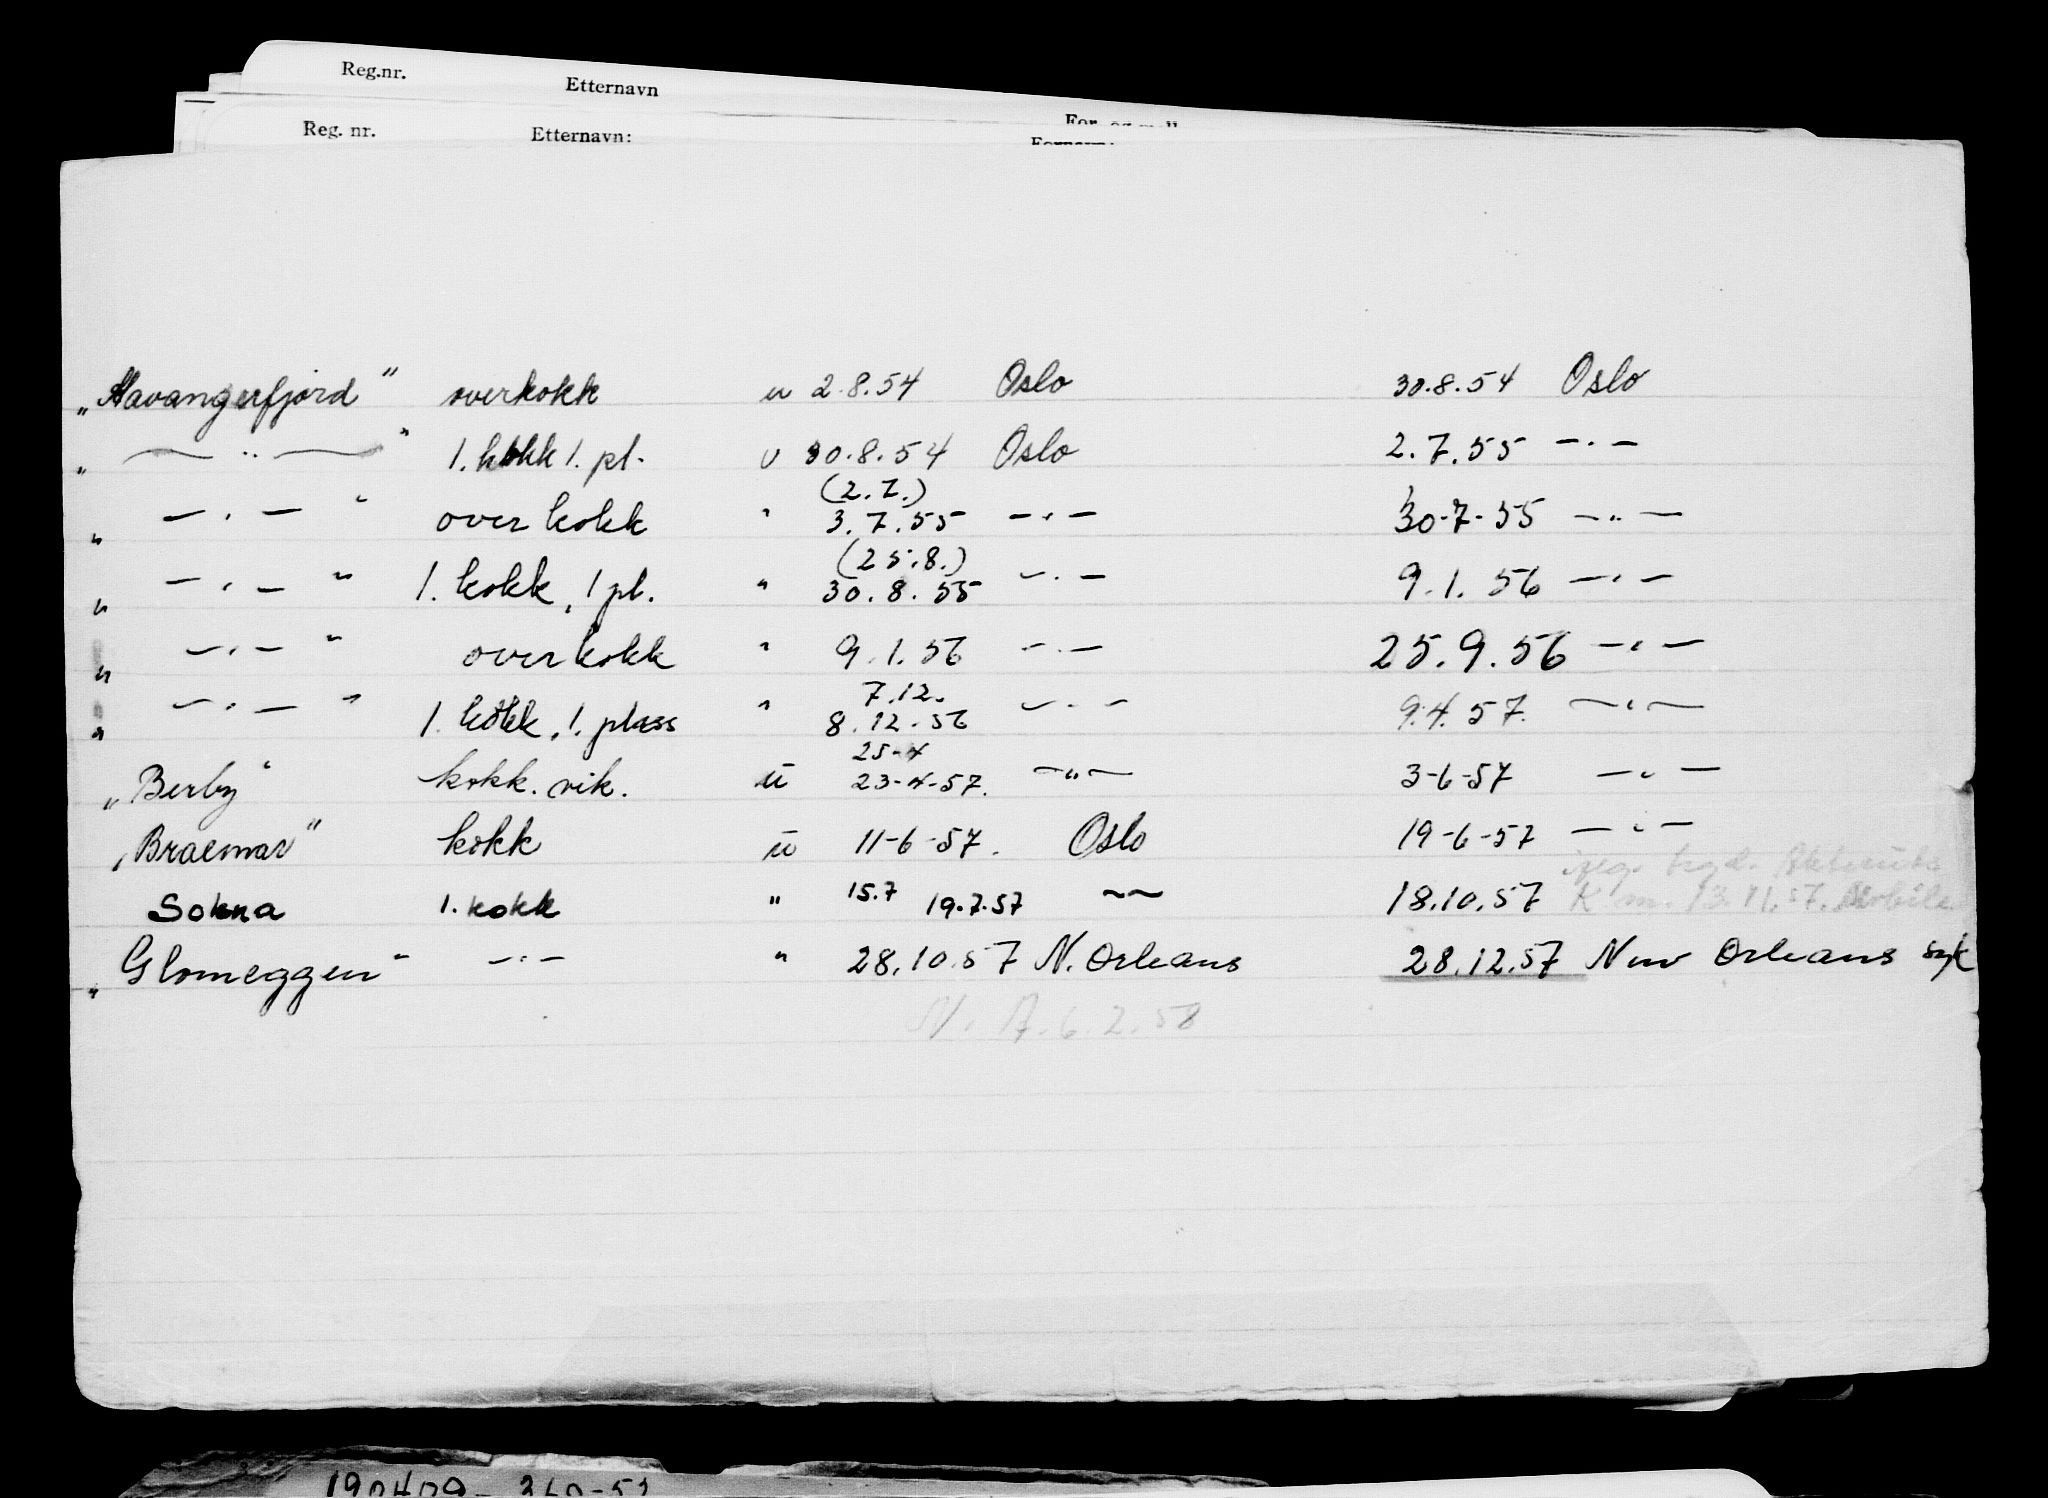 Reg.nr. Etternavn
Reg. nr. Etternavn:
"Stavangerfjord" overkokk u 2.8.54 Oslo 30.8.54 Oslo
" — " — " 1. kokk 1. pl. u 30.8.54 Oslo 2.7.55 — . —
(2.7.)
" — . — " overkokk " 3.7.55 — . — 30-7-55 — " —
(25.8.)
" — . — " 1. kokk, 1 pl. " 30.8.55 — . — 9.1.56 — . —
" — . — " overkokk " 9.1.56 — . — 25.9.56 — . —
7.12.
" — . — " 1. kokk, 1. plass " 8.12.56 — . — 9.4.57. — " —
25-4
"Berby" kokk. vik. u 23-4-57. — " — 3-6-57 — " —
"Braemar" kokk u 11-6-57. Oslo 19-6-57 — " —
Sokna 1. kokk " 15.7 19.7.57 — — 18.10.57 K m. 13.11.57. Mobile
"Glomeggen" — . — " 28.10.57 N. Orleans 28.12.57 New Orleans syk
A. 6.2.58
190409 - 360-51